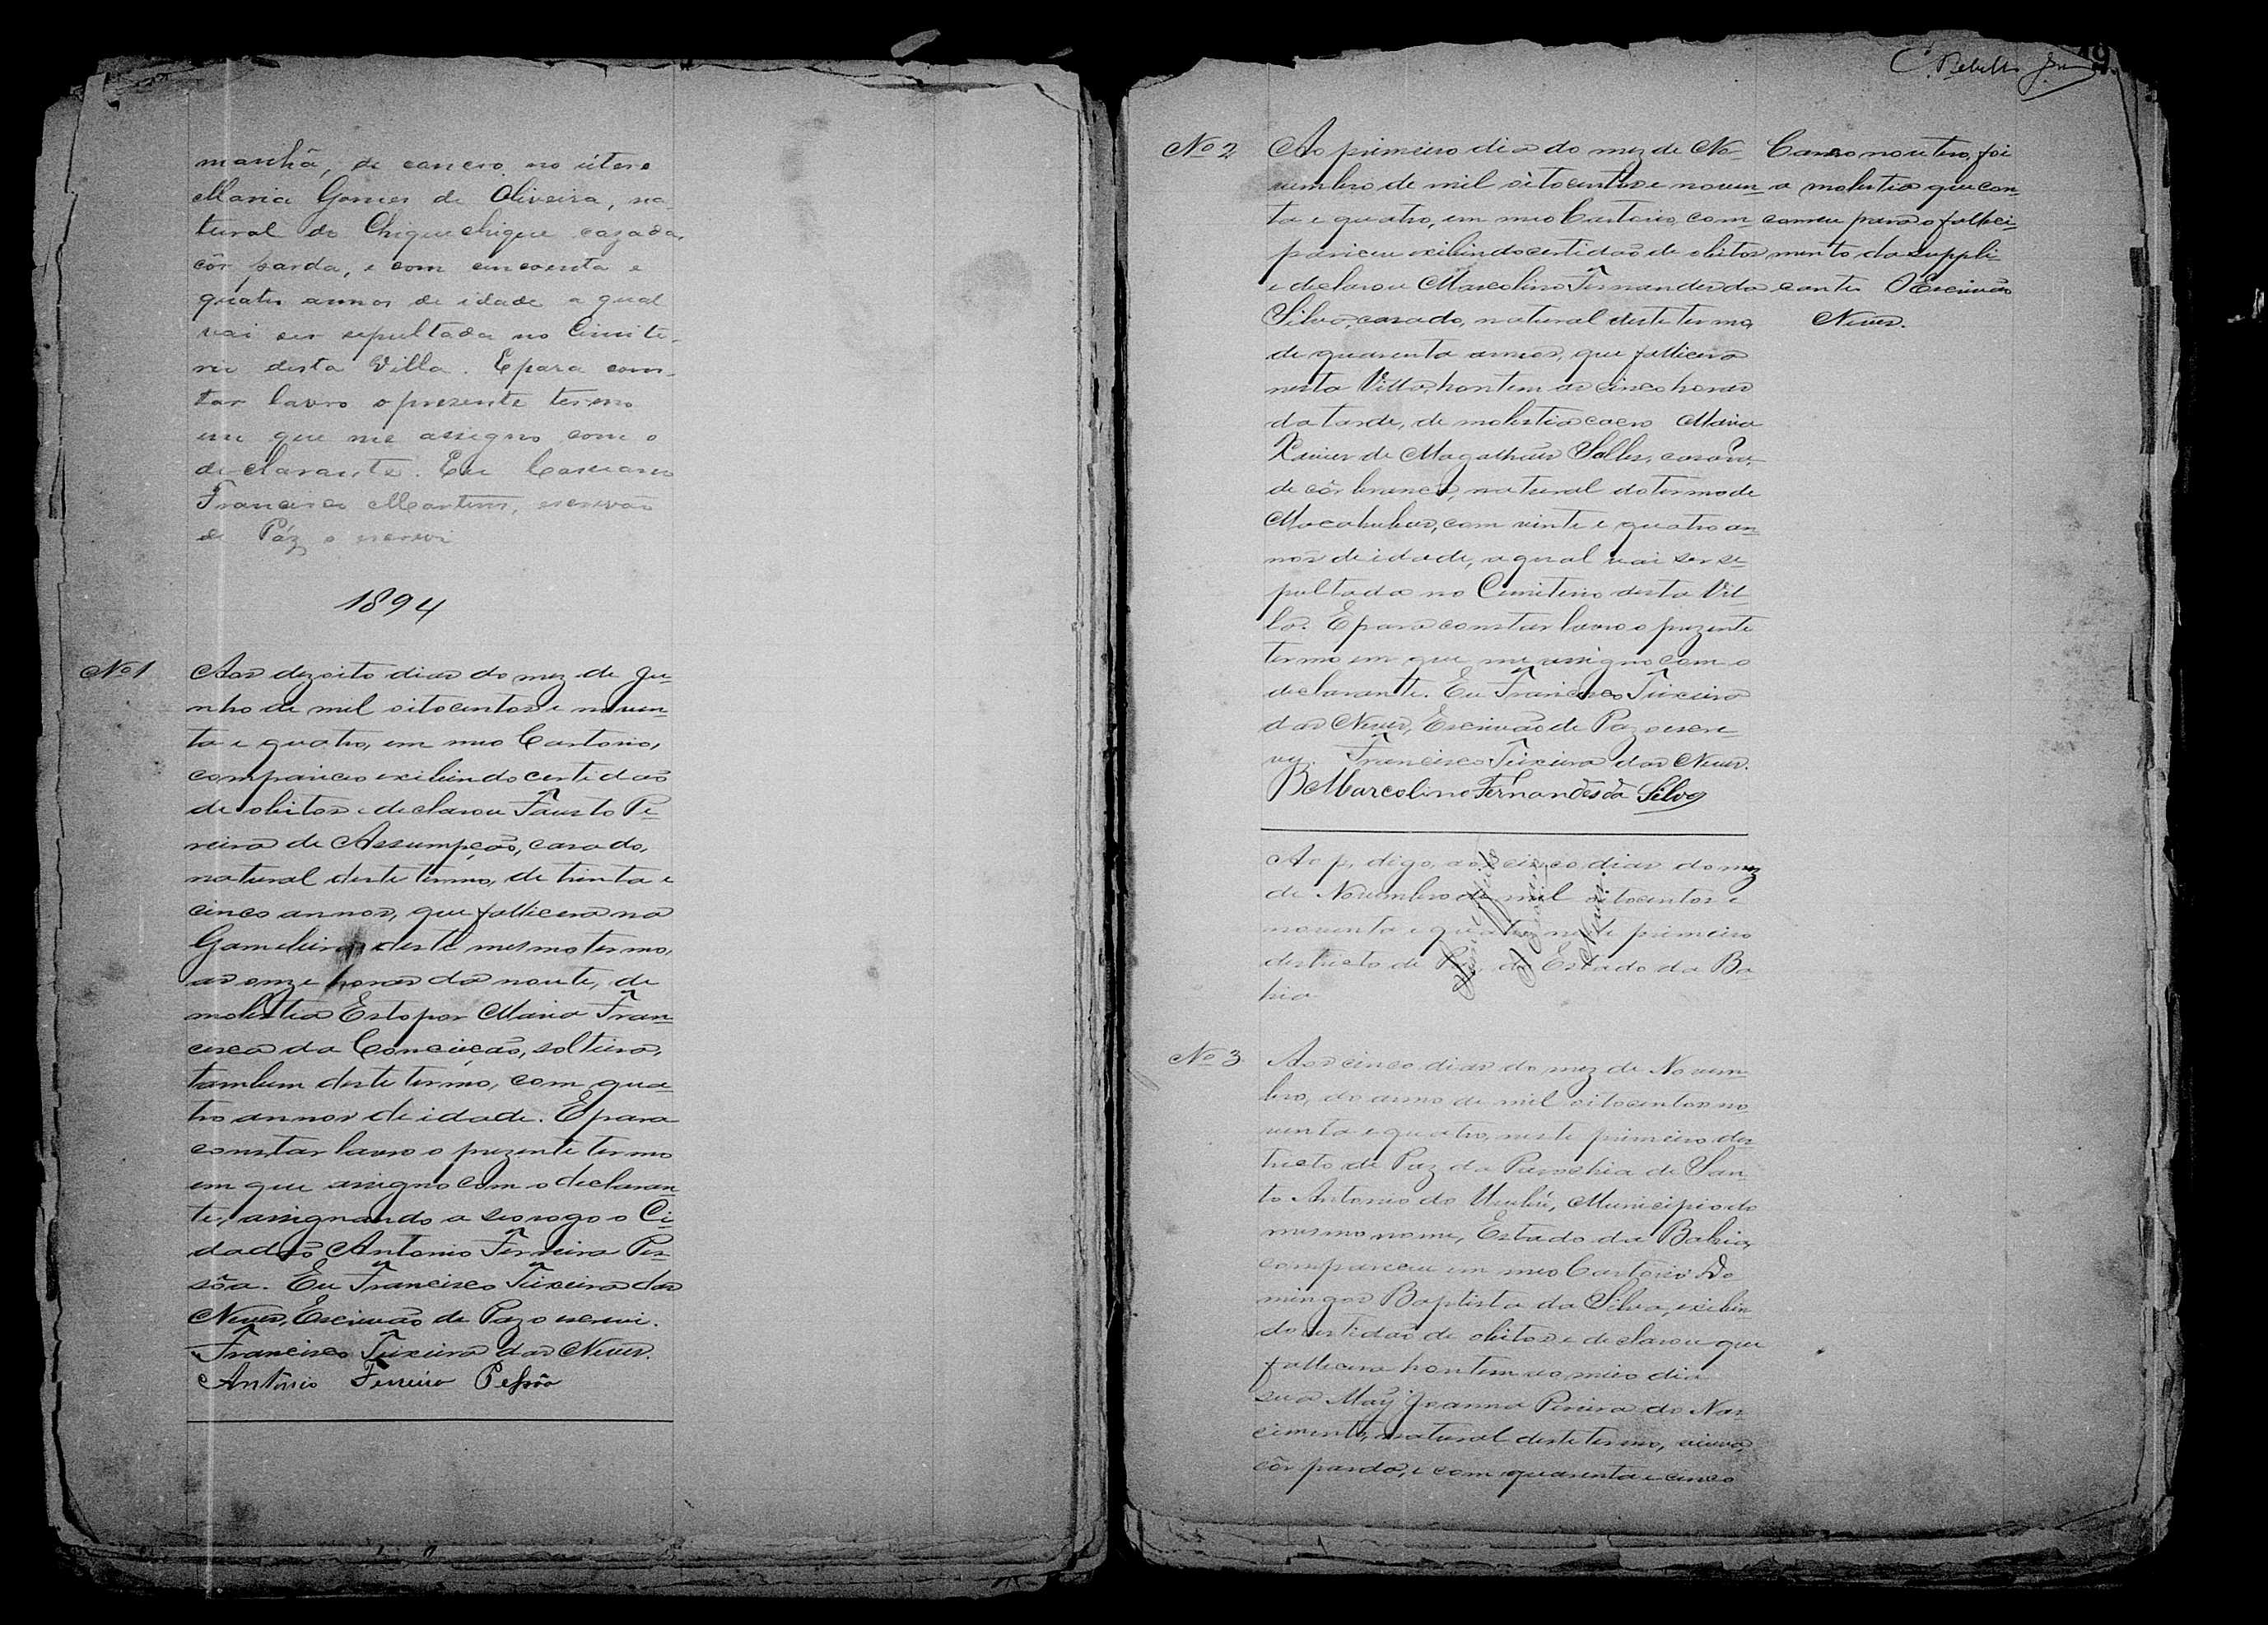 manhã, de cancro no útero
Maria Gomes de Oliveira, na-
tural do Chique chique cazada,
côr parda, e com cincoenta e
quatro annos de idade a qual
vai ser sepultada no Cimite-
rio desta Villa. E para cons-
tar lavro o prezente termo
em que me assigno com o
declarante. Eu Cassiano
Francisco Martins, escrivão
de Páz o escrevi
1894
Nº 1
Aos dezoito dias do mez de Ju-
nho de mil oitocentos e noven-
ta e quatro, em meo Cartorio,
compareceo exibindo certidão
de obitos e declarou Fausto Pe-
reira de Assumpção, casado,
natural deste termo, de trinta e
cinco annos, que fallicera na
Gameleira deste mesmo termo,
as onze horas da noute, de
molestia Estopor Maria Fran-
cisca da Conceição, solteira,
tambem deste termo, com qua-
tro annos de idade. E para
constar lavro o prezente termo
em que assigno com o declaran-
te, assignando a seo rogo o Ci-
dadão Antonio Ferreira Pes-
sôa. Eu Francisco Teixeira das
Neves, Escrivão de Paz o escrevi.
Francisco Teixeira das Neves.
Antônio Ferreira Pessôa
C. Rebello
19
Nº 2
Ao primeiro dia do mez de No-
vembro de mil oitocentos e noven-
ta e quatro, em meo Cartorio, com-
pariceu exibindo certidão de obitos
e declarou Marcolino Fernandes da
Silva, casado, natural deste termo,
de quarenta annos, que fallicera
nesta Villa, hontem as cinco horas
da tarde, de molestia Maria
Xavier de Magalhães Salles, casada,
de côr branca, natural do termo de
Macahubas, com vinte e quatro an-
nos de idade, a qual vai ser se-
pultada no Cemiterio desta Vil-
la. E para constar lavro o prezente
termo em que me assigno com o
declarante. Eu Francisco Teixeira
das Neves, Escrivão de Paz o escre-
vy. Francisco Teixeira das Neves.
Marcolino Fernandes da Silva
Cancro no utero, foi
a molestia que con-
correu para o falleci-
mento da suppli-
cante. O Escrivão
Neves.
Ao p, digo, aos cinco dias do mez
de Novembro de mil oitocentos e
noventa e quatro neste primeiro
destricto de Paz do Estado da Ba
hia
O Escrivão
Neves.
Nº 3
Aos cinco dias do mez de Novem-
bro, do anno de mil oitocentos no-
venta e quatro, neste primeiro des-
tricto de Paz da Parochia de San-
to Antonio do Urubú, Municipio do
mesmo nome, Estado da Bahia,
compareceu em meo Cartorio Do
mingos Baptista da Silva, exibin-
do certidão de obitos e declarou que
fallicera hontem ao meio dia
sua Maÿ Joanna Pereira do Nas-
cimento, natural deste termo, viuva,
côr parda, e com quarenta e cinco